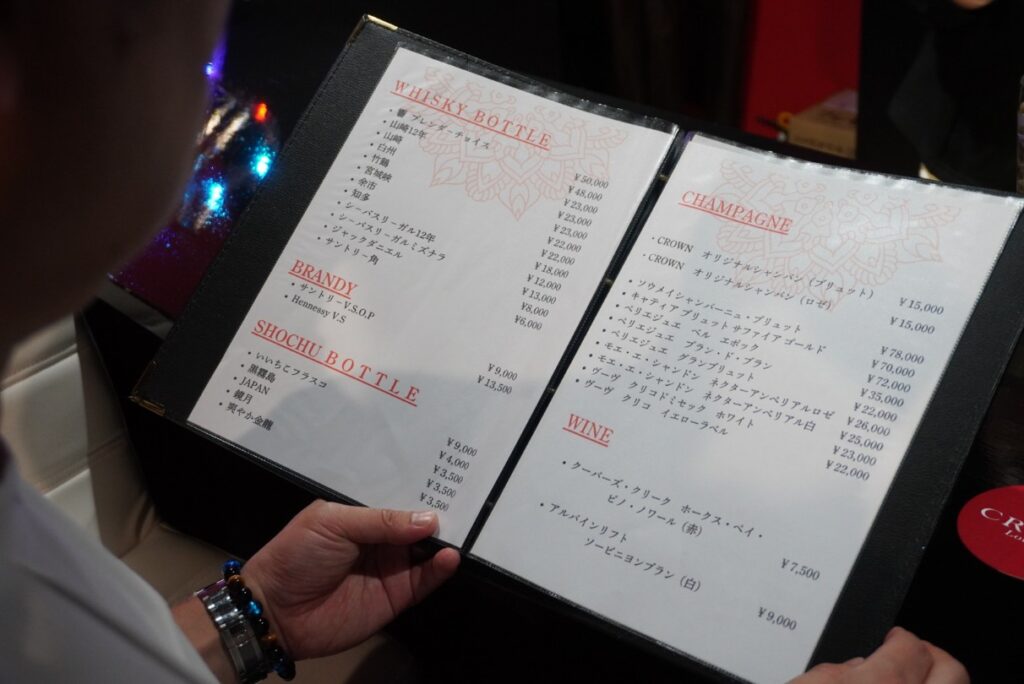 WHISKY BOTTLE
・響 ブレンダーチョイス ¥50,000
・山崎12年 ¥48,000
・山崎 ¥23,000
・白州 ¥23,000
・竹鶴 ¥23,000
・宮城峡 ¥22,000
・余市 ¥22,000
・知多 ¥18,000
・シーバスリーガル12年 ¥12,000
・シーバスリーガルミズナラ ¥13,000
・ジャックダニエル ¥8,000
・サントリー角 ¥6,000
BRANDY
・サントリーV.S.O.P ¥9,000
・Hennessy V.S ¥13,500
SHOCHU BOTTLE
・いいちこフラスコ ¥9,000
・黒霧島 ¥4,000
・JAPAN ¥3,500
・鏡月 ¥3,500
・爽やか金龍 ¥3,500
CHAMPAGNE
・CROWN オリジナルシャンパン（ブリュット） ¥15,000
・CROWN オリジナルシャンパン（ロゼ） ¥15,000
・ソウメイシャンパーニュ・ブリュット ¥78,000
・キャティア ブリュット サファイア ゴールド ¥70,000
・ペリエジュエ ベル エポック ¥72,000
・ペリエジュエ ブラン・ド・ブラン ¥35,000
・ペリエジュエ グランブリュット ¥22,000
・モエ・エ・シャンドン ネクターアンペリアルロゼ ¥26,000
・モエ・エ・シャンドン ネクターアンペリアル白 ¥25,000
・ヴーヴ クリコドミセック ホワイト ¥23,000
・ヴーヴ クリコ イエローラベル ¥22,000
WINE
・クーパーズ・クリーク ホークス・ベイ・
ピノ・ノワール（赤） ¥7,500
・アルパインリフト
ソービニヨンブラン（白） ¥9,000